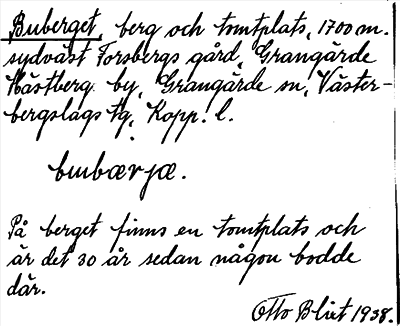 Buberget berg och tomtplats, 1700 m.
sydväst Forsbergs gård, Grangärde
Hästberg by, Grangärde sn, Väster-
bergslags tg, Kopp. l.
bubærjæ.
På berget finns en tomtplats och
är det 30 år sedan någon bodde
där.
Otto Blixt 1938.